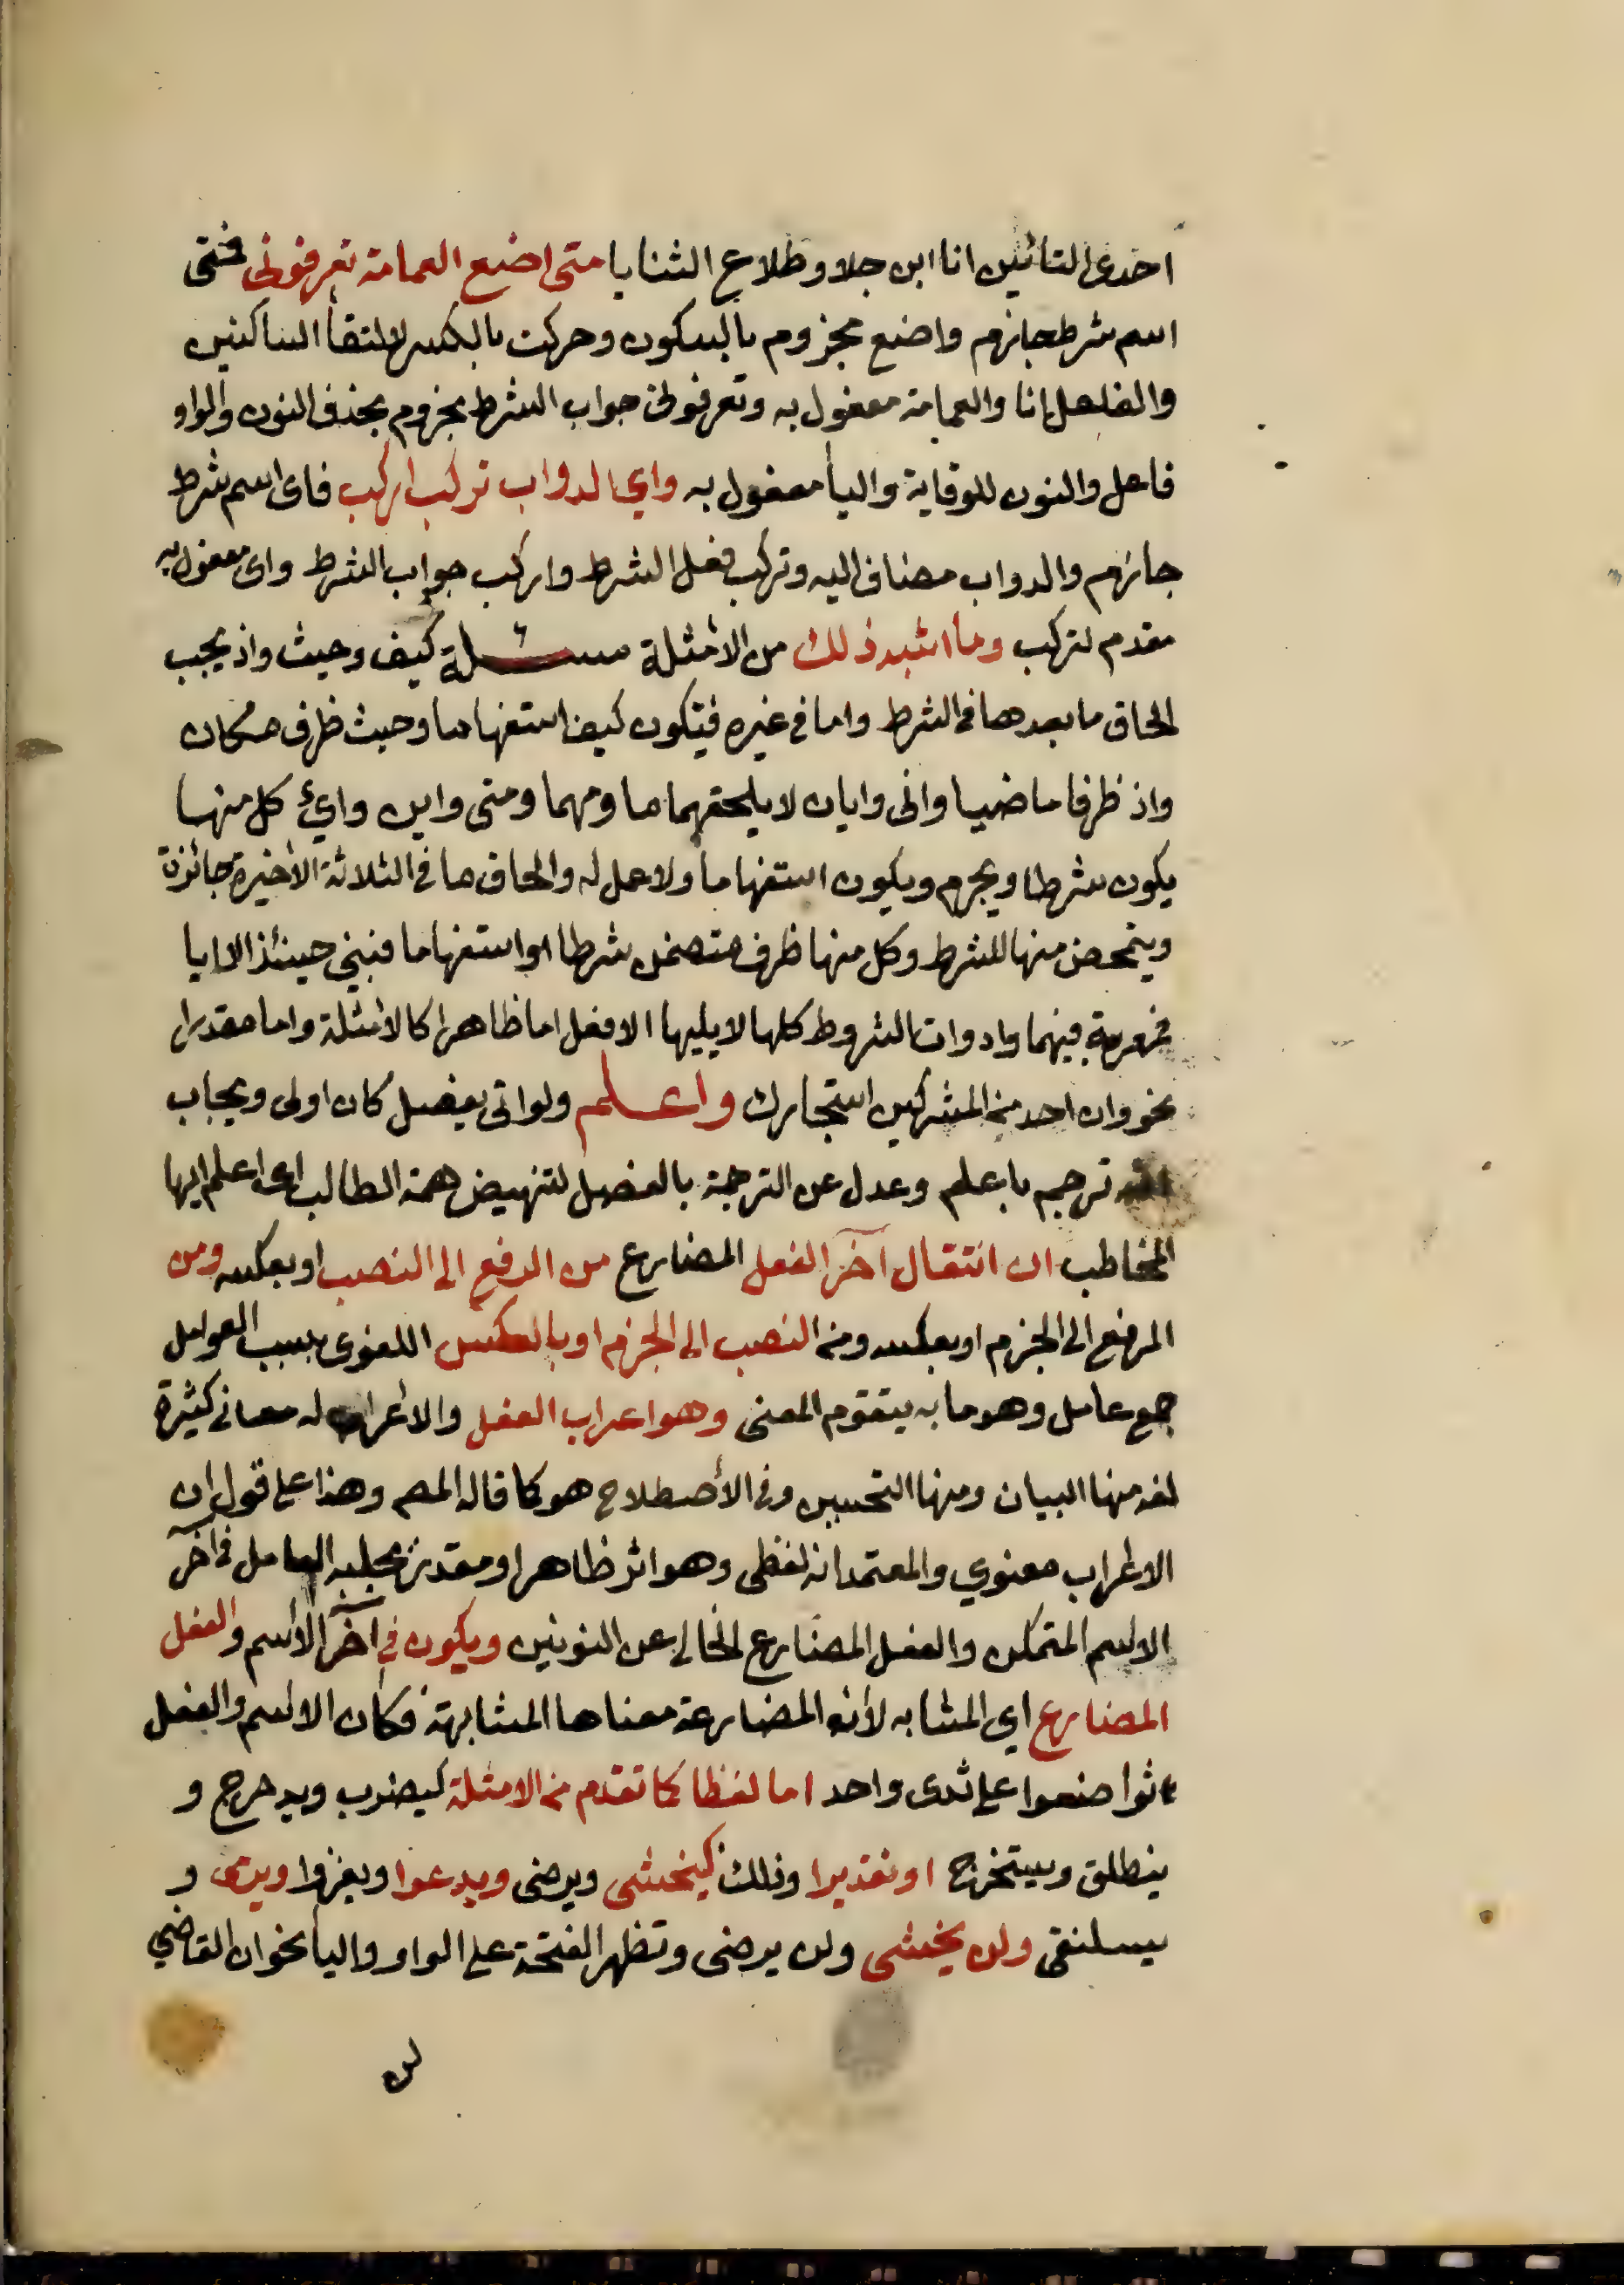 احدى التائين انا ابن جلا وطلاع الثنايا متى اضع العمامة تعرفونى فمتى
اسم شرط جازم واضع مجزوم بالسكون وحركت بالكسر لالتقأ الساكنين
والفاعل انا والعمامة مفعول به وتعرفونى جواب الشرط مجزوم بحذف النون والواو
فاعل والنون للوقاية واليأ مفعول به واي الدواب تركب اركب فاى اسم شرط
جازم والدواب مضاف اليه وتركب فعل الشرط واركب جواب الشرط واى مفعول به
مقدم لتركب وما اشبه ذلك من الأمثلة مسئلة كيف وحيث واذ يجب
الحاق ما بعدها فى الشرط واما فى غيره فيكون كيف استفهاما وحيث ظرف مكان
واذ ظرفا ماضيا وانى وايان لا يلحقهما ما ومهما ومتى واين واي كل منها
يكون شرطا ويجزم ويكون استفهاما ولا عمل له والحاق ما فى الثلاثة الأخيرة جائزة
ويتمحض منها للشرط وكل منها ظرف متضمن شرطا او استفهاما فبنى حينئذ الا ايا
فمعربة فيهما وادوات الشروط كلها لا يليها الا فعل اما ظاهرا كالأمثلة واما مقدرا
نحو وان احد من المشركين استجارك واعلم ولو اتى بفصل كان اولى ويجاب
انه ترجم باعلم وعدل عن الترجمة بالفصل لتنهيض همة الطالب اى اعلم ايها
المخاطب ان انتقال آخر الفعل المضارع من الرفع الى النصب او بعكسه ومن
الرفع الى الجزم او بعكسه ومن النصب الى الجزم او بالعكس اللغوى بسبب العوامل
جمع عامل وهو ما به يتقوم المعنى وهو اعراب الفعل والأعراب له معانى كثيرة
لغة منها البيان ومنها التحسين وفى الأصطلاح هو كما قاله المص وهذا على قول ان
الاعراب معنوي والمعتمد انه لفظى وهو اثر ظاهر او مقدر يجلبه العامل فى آخر
الاسم المتمكن والفعل المضارع الخالى عن النونين ويكون في آخر الأسم والفعل
المضارع اي المشابه لأن المضارعة معناها المشابهة فكان الاسم والفعل
تواضعوا على ثدى واحد اما لفظا كما تقدم من الامثلة كيضرب ويدحرج و
ينطلق ويستخرج او تقديرا وذلك كيخشى ويرضى ويدعوا ويغزوا ويرمى و
يسلنقى ولن يخشى ولن يرضى وتظهر الفتحة على الواو واليأ نحو ان القاضي
لن